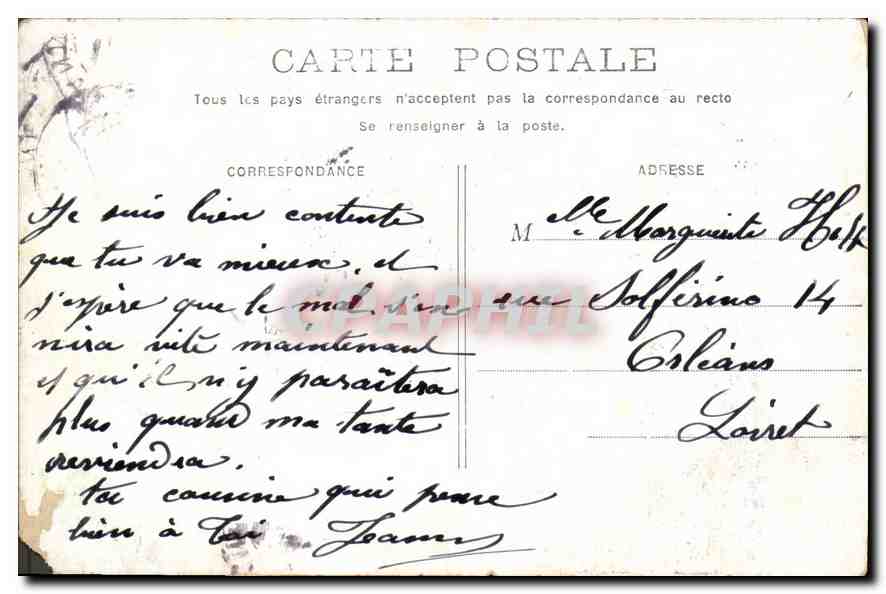 CARTE POSTALE
Tous les pays étrangers n'acceptent pas la correspondance au recto
Se renseigner à la poste.
CORRESPONDANCE
Je suis bien contente
que tu va mieux, et
j'espère que le mal s'en
nira vite maintenant
et qu'il n'y paraîtera
plus quand ma tante
reviendra.
ta cousine qui pense
bien à Toi Jeanne
ADRESSE
M Mlle Marguerite
rue Solférino 14
Orléans
Loiret
CPAPHIL